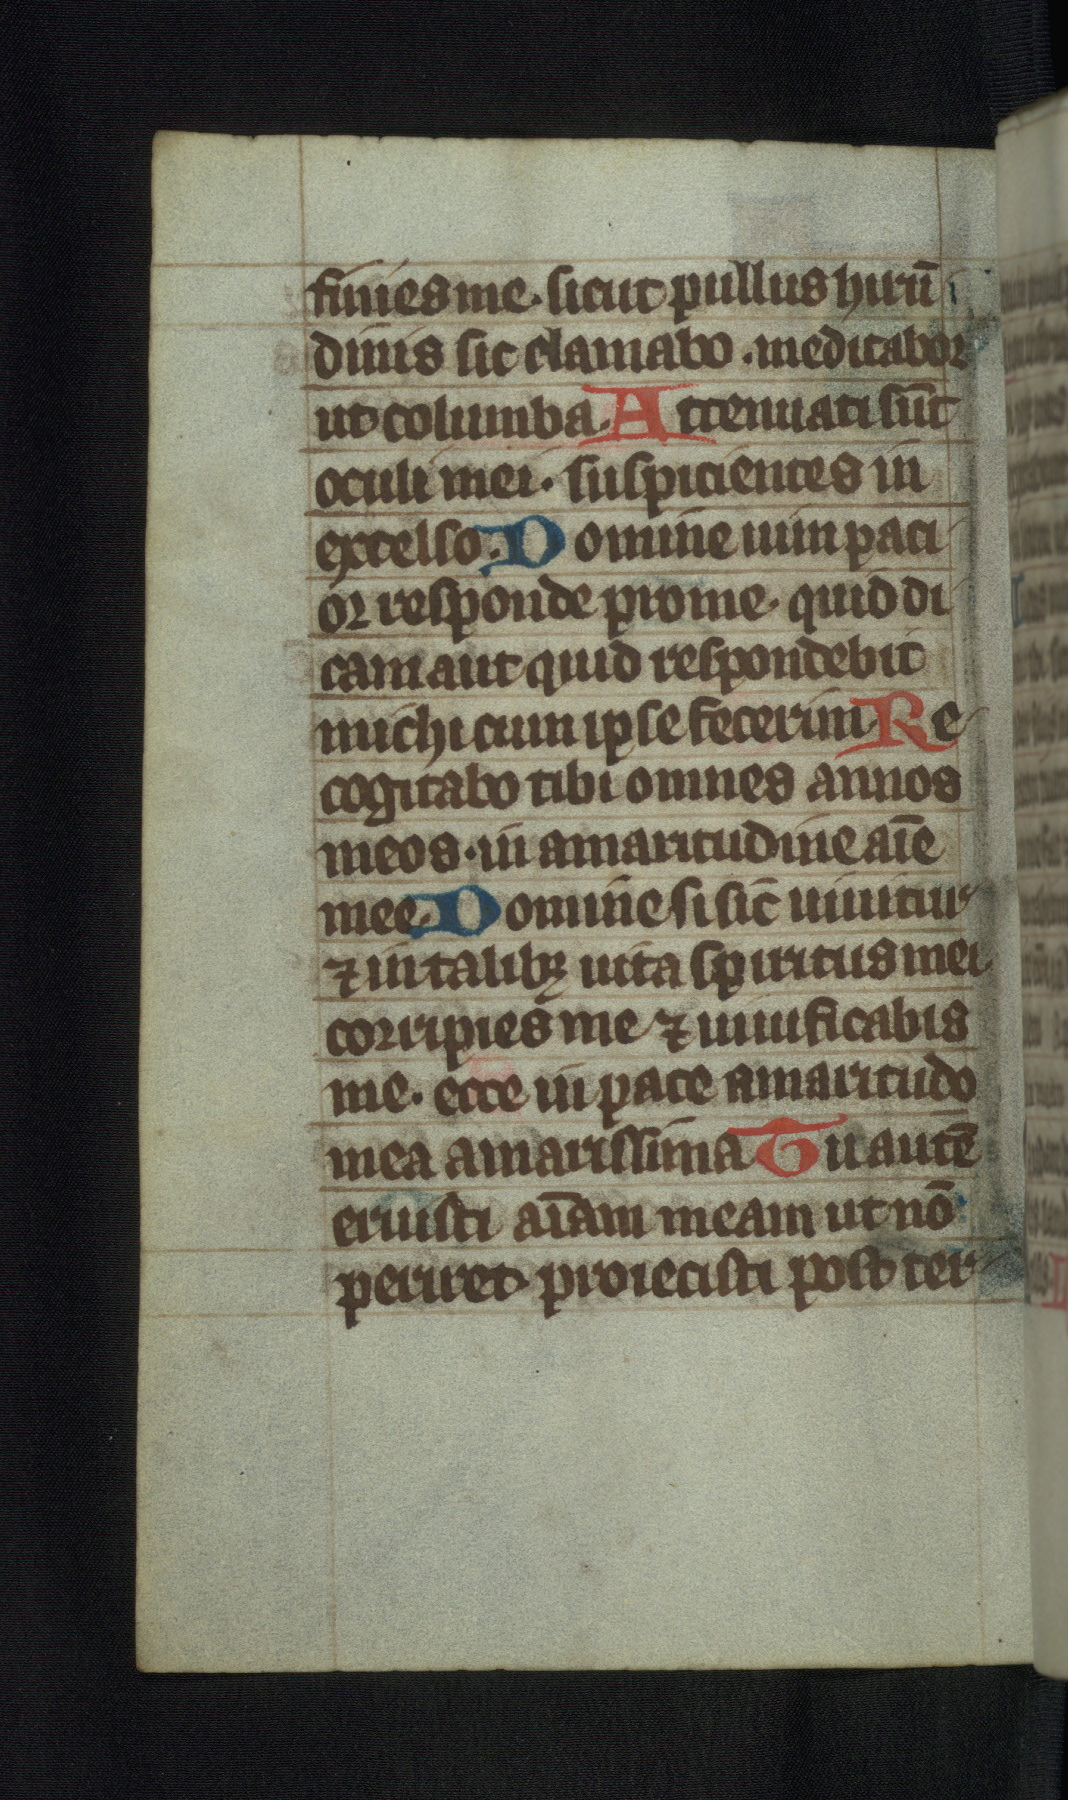 finies me. sicut pullus hirū
dinis sic clamabo. meditabor
ut columba. Attenuati sūt
oculi mei. suspicientes in
excelso. Domine uim paci
or responde pro me. quid di
cam aut quid respondebit
michi cum ipse fecerim. Re
cogitabo tibi omnes annos
meos. in amaritudine aīe
mee. Domine si sic̄ uiuitur
⁊ in talibꝫ uita spiritus mei
corripies me ⁊ uiuificabis
me. ecce in pace amaritudo
mea amarissima Tu autē
eruisti aīam meam ut nō
periret. proiecisti post ter